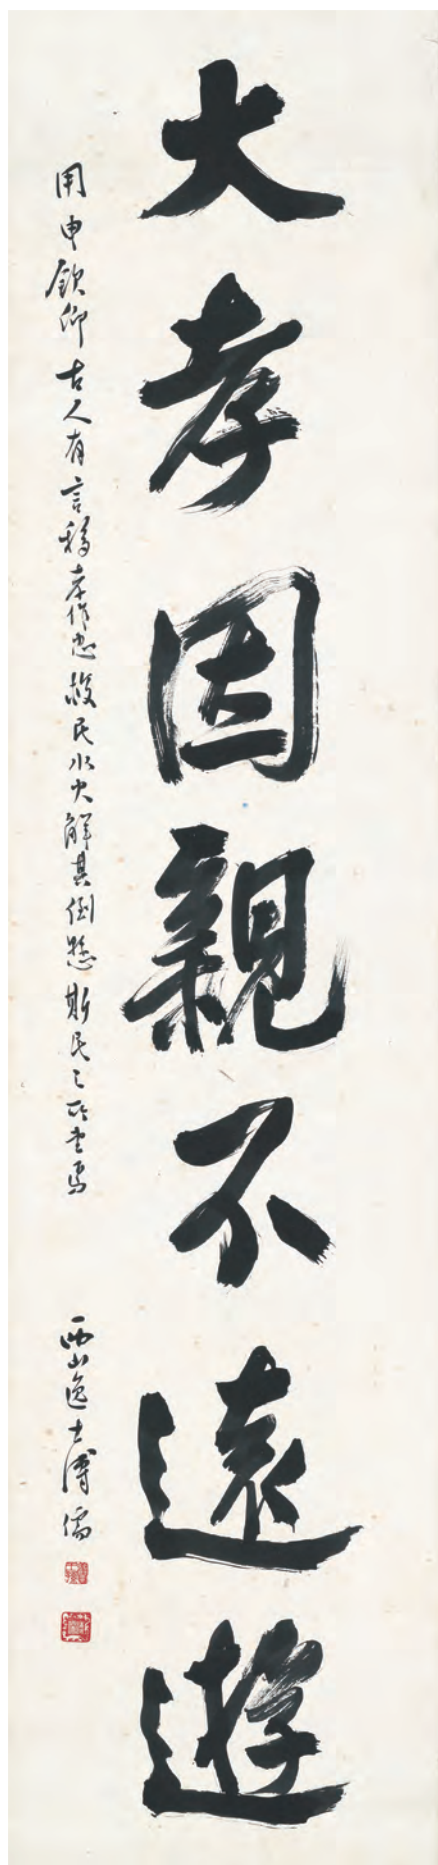 大孝因親不遠遊
用申欽仰古人有言移孝作忠救民水火解其倒懸斯民之所望焉
西山逸士溥儒